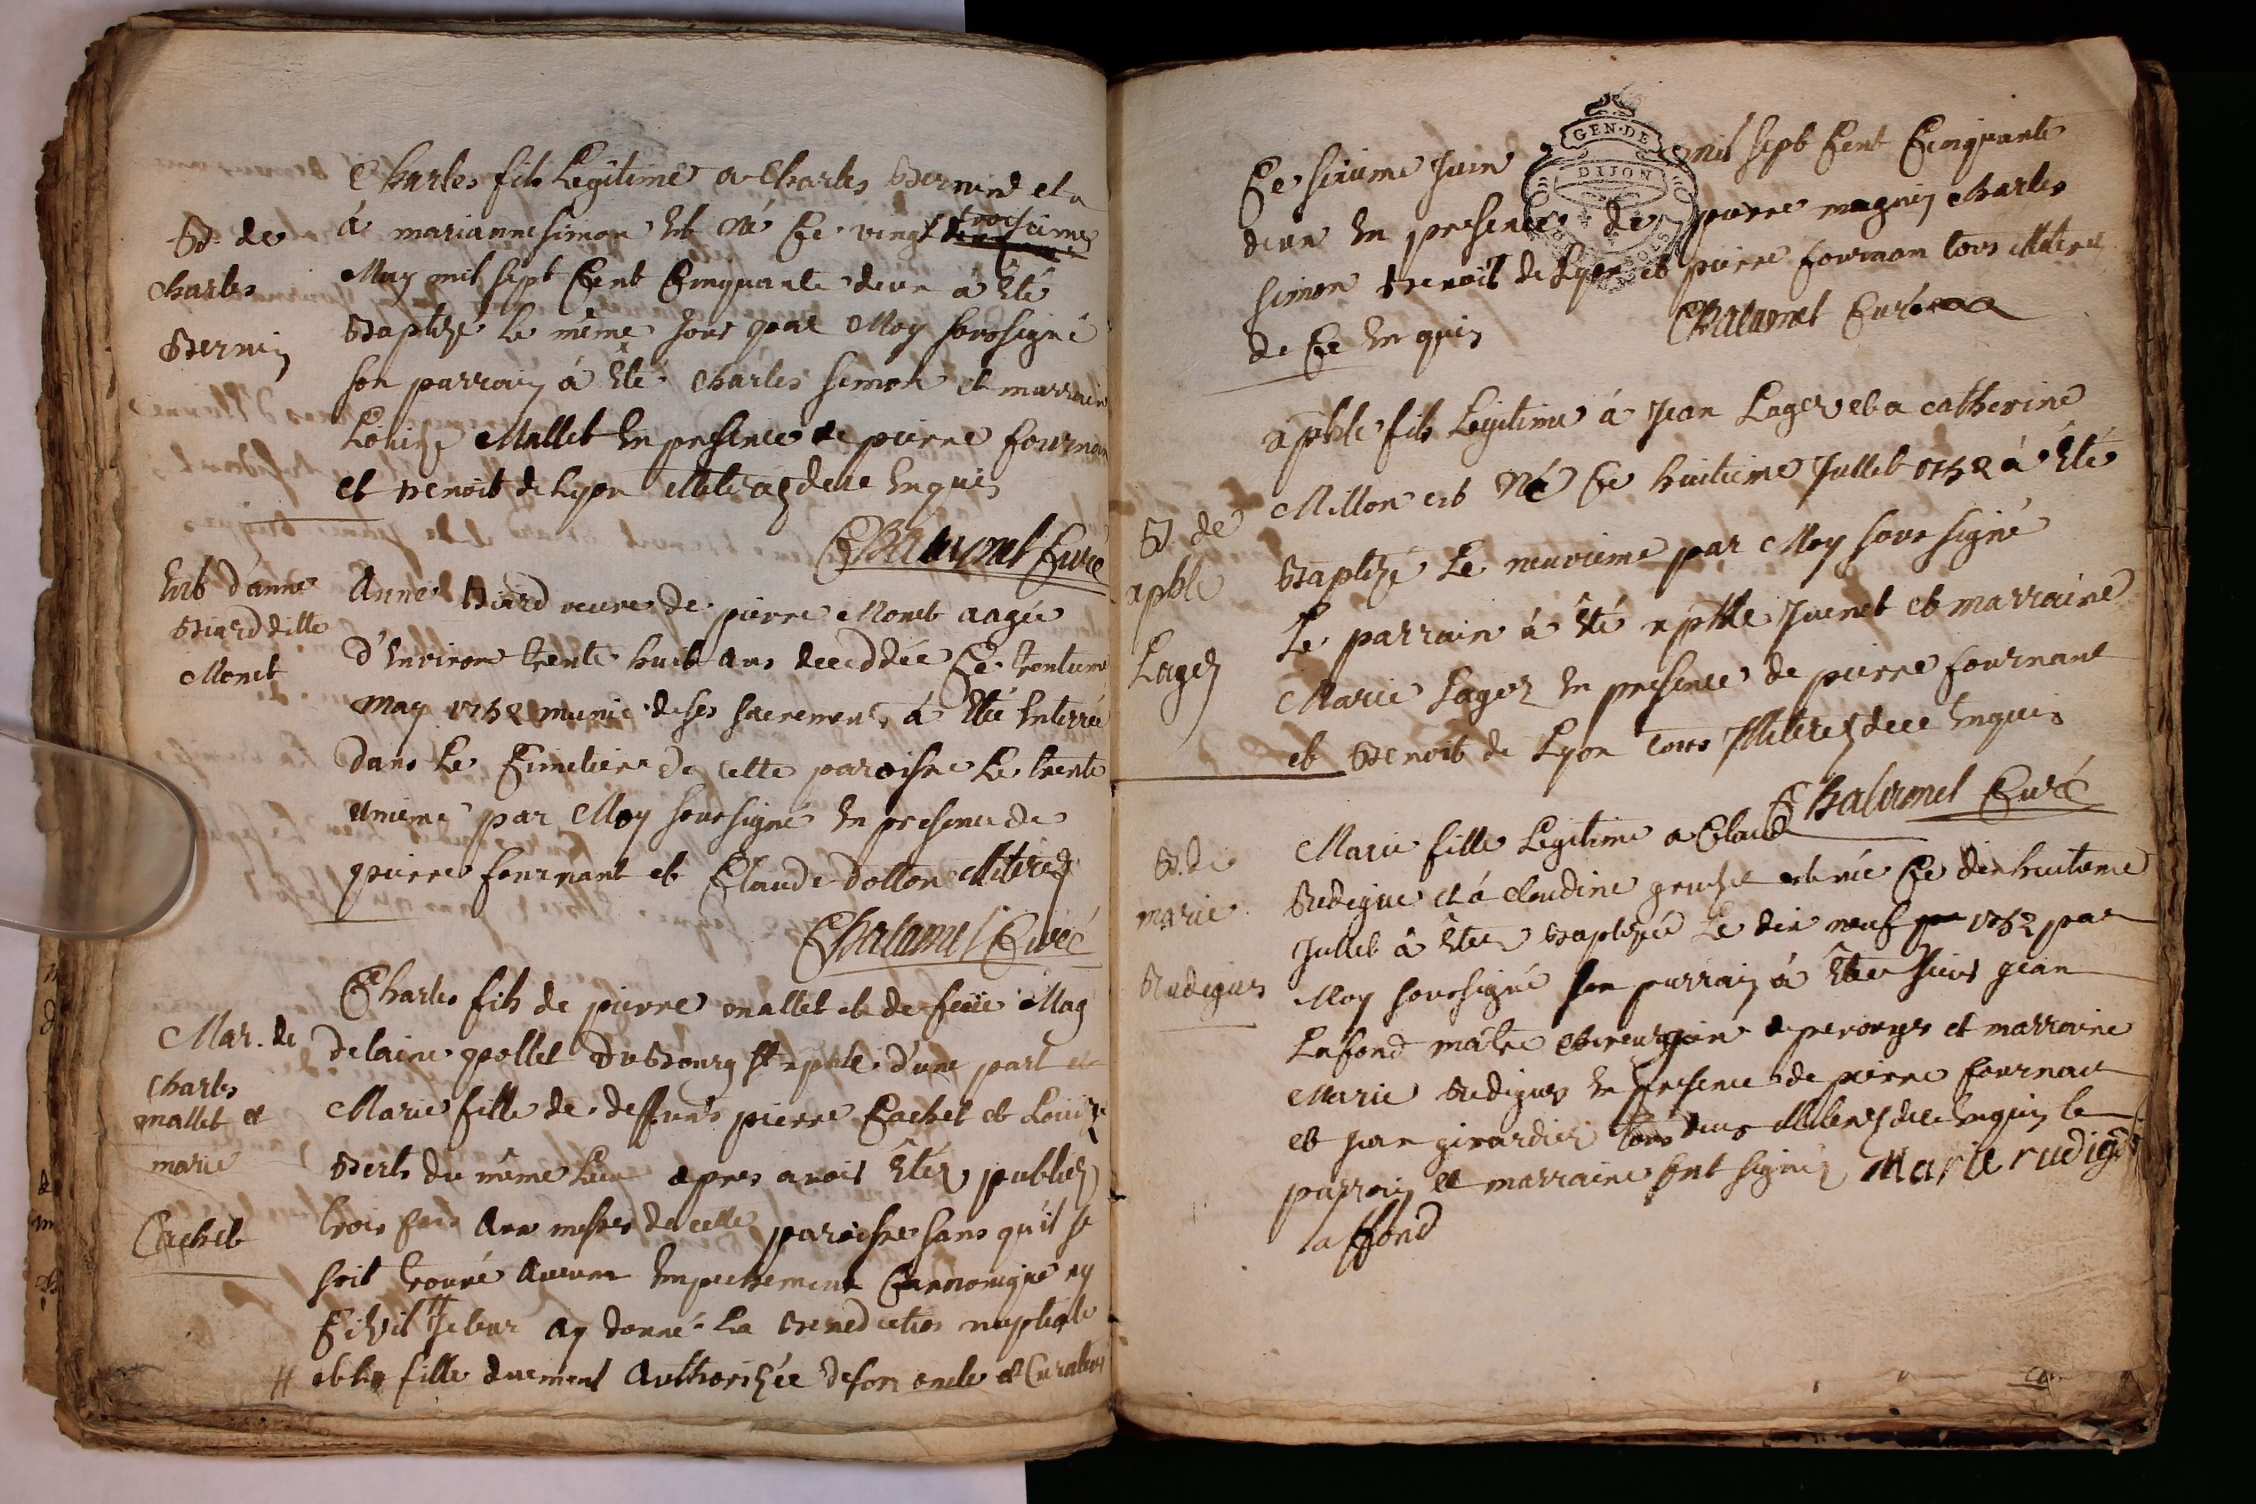 B. de
Charles
Bernin
Charles fils Legitime a Charles Bernind et a
à marianne simon est Né Ce vingt troisieme
May mil sept Cent Cinquante deux à Eté
Baptizé le même jour par Moy soussigné
son parrain à Eté Charles simon et marraine
Louize Mallet En presence de pierre fournan
et Benoit de Lyon illiterés de ce Enquis
Chalamel Curé
Ent d'anne
Biard ditte
Monet
Anne Biard veuve de pierre Monet aagée
d'Environ trente huit ans deceddée Ce trentieme
may 1752 munie de ses sacrements à Eté Enterrée
dans Le Cimetiere de cette paroisse Le trente
unieme par Moy soussigné En presence de
pierre fournant et Claude dotton illiterés
Chalamel Curé
Mar. de
Charles
mallet et
marie
Cachet
Charles fils de pierre mallet et de feüe Mag
delaine pollet du Bourg St aphle d'une part et
Marie fille de deffunts pierre Cachet et Louize
Berts du même Lieu apres avoir Etez publiez
trois fois aux messes de cette paroisse sans qu'il se
soit trouvé aucun Empechement Cannonique ny
Civil # Je leur ay donné La Benediction nuptiale
# et la fille duement Authorizée de son oncle et Curateur
Ce sixieme Juin mil sept Cent Cinquante
GEN. DE
DIJON
deux En presence de pierre magnin Charles
simon Benoit de Lyon et pierre fournan tous illiterés
de Ce Enquis
Chalamel Curé
B. de
aphle
Lager
aphle fils Legitime à Jean Lager et a catherine
Millon est Né Ce huitieme Jullet 1752 à Eté
Baptizé Le neuvieme par Moy soussigné
Le parrain à Eté aphle Juenet et marraine
Marie Lager En presence de pierre fournant
et Benoit de Lyon tous illiterez de ce Enquis
Chalamel Curé
B. de
marie
Rudigue
Marie fille Legitime a Claude
Rudigue et à Claudine est née Ce dix huitieme
Jullet à Eté Baptizée Le dix neuf 1752 par
Moy soussigné son parrain à Eté sieur jean
Lafond maitre chirurgien a perouges et marraine
Marie Rudigue En presence de pierre fournant
et jean girardier tous deux illiterez de ce Enquis le
parrain et marraine ont signéz Marie rudigue
laffond